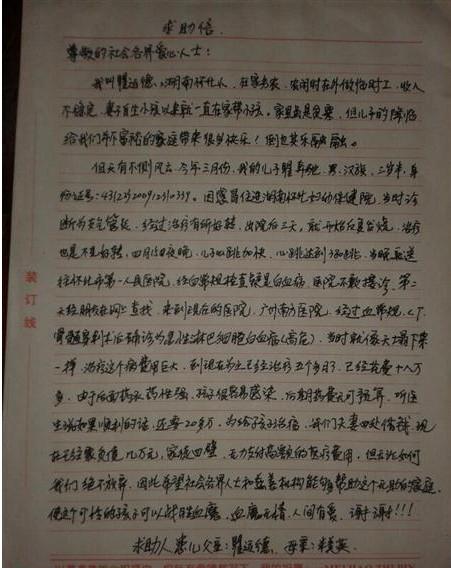 求助信
尊敬的社会各界爱心人士:
我叫瞿远德,湖南怀化人,在家务农,农闲时在外做临时工,收入
不稳定,妻子自生小孩以来就一直在家带小孩。家里虽是贫穷,但儿子的降临
给我们并不富裕的家庭带来很多快乐!倒也其乐融融。
但天有不测风云,今年三月份,我的儿子瞿,男,汉族,三岁半,身
份证号:因感冒住进湖南怀化妇幼保健院,当时诊
断为支气管炎,经过治疗有所好转,出院后三天,就开始反复发烧,治疗
也是不见好转,四月15日夜晚,儿子心跳加快,心跳达到,当晚転送
往怀化市第一人民医院,经血常规检查疑是白血病,医院不敢接诊,第二
天经朋友在网上查找,来到现在的医院,广州南方医院,经过血常规,CT,
骨髓穿刺术后确诊为急性淋巴细胞白血病(高危),当时就像天土塌下来
一样,治疗这个病费用巨大,到现在为止已经治疗五个多月了,已经花费十八万
多,由于后面药水药性强,孩子很容易感染,后期花费无可预算,听医
生说如果顺利的话,还要20多万,为给孩子治病,我们夫妻四处借钱,现
在已经累负债几万元,家徒四壁,无力支付高额的医疗费用,但无论如何
我们绝不放弃,因此希望社会各界人士和慈善机构能够帮助这个无助的家庭,
使这个可怜的孩子可以战胜血魔,血魔无情,人间有爱,谢谢!!!
求助人患儿父亲:瞿远德,母亲:美英。
装订线